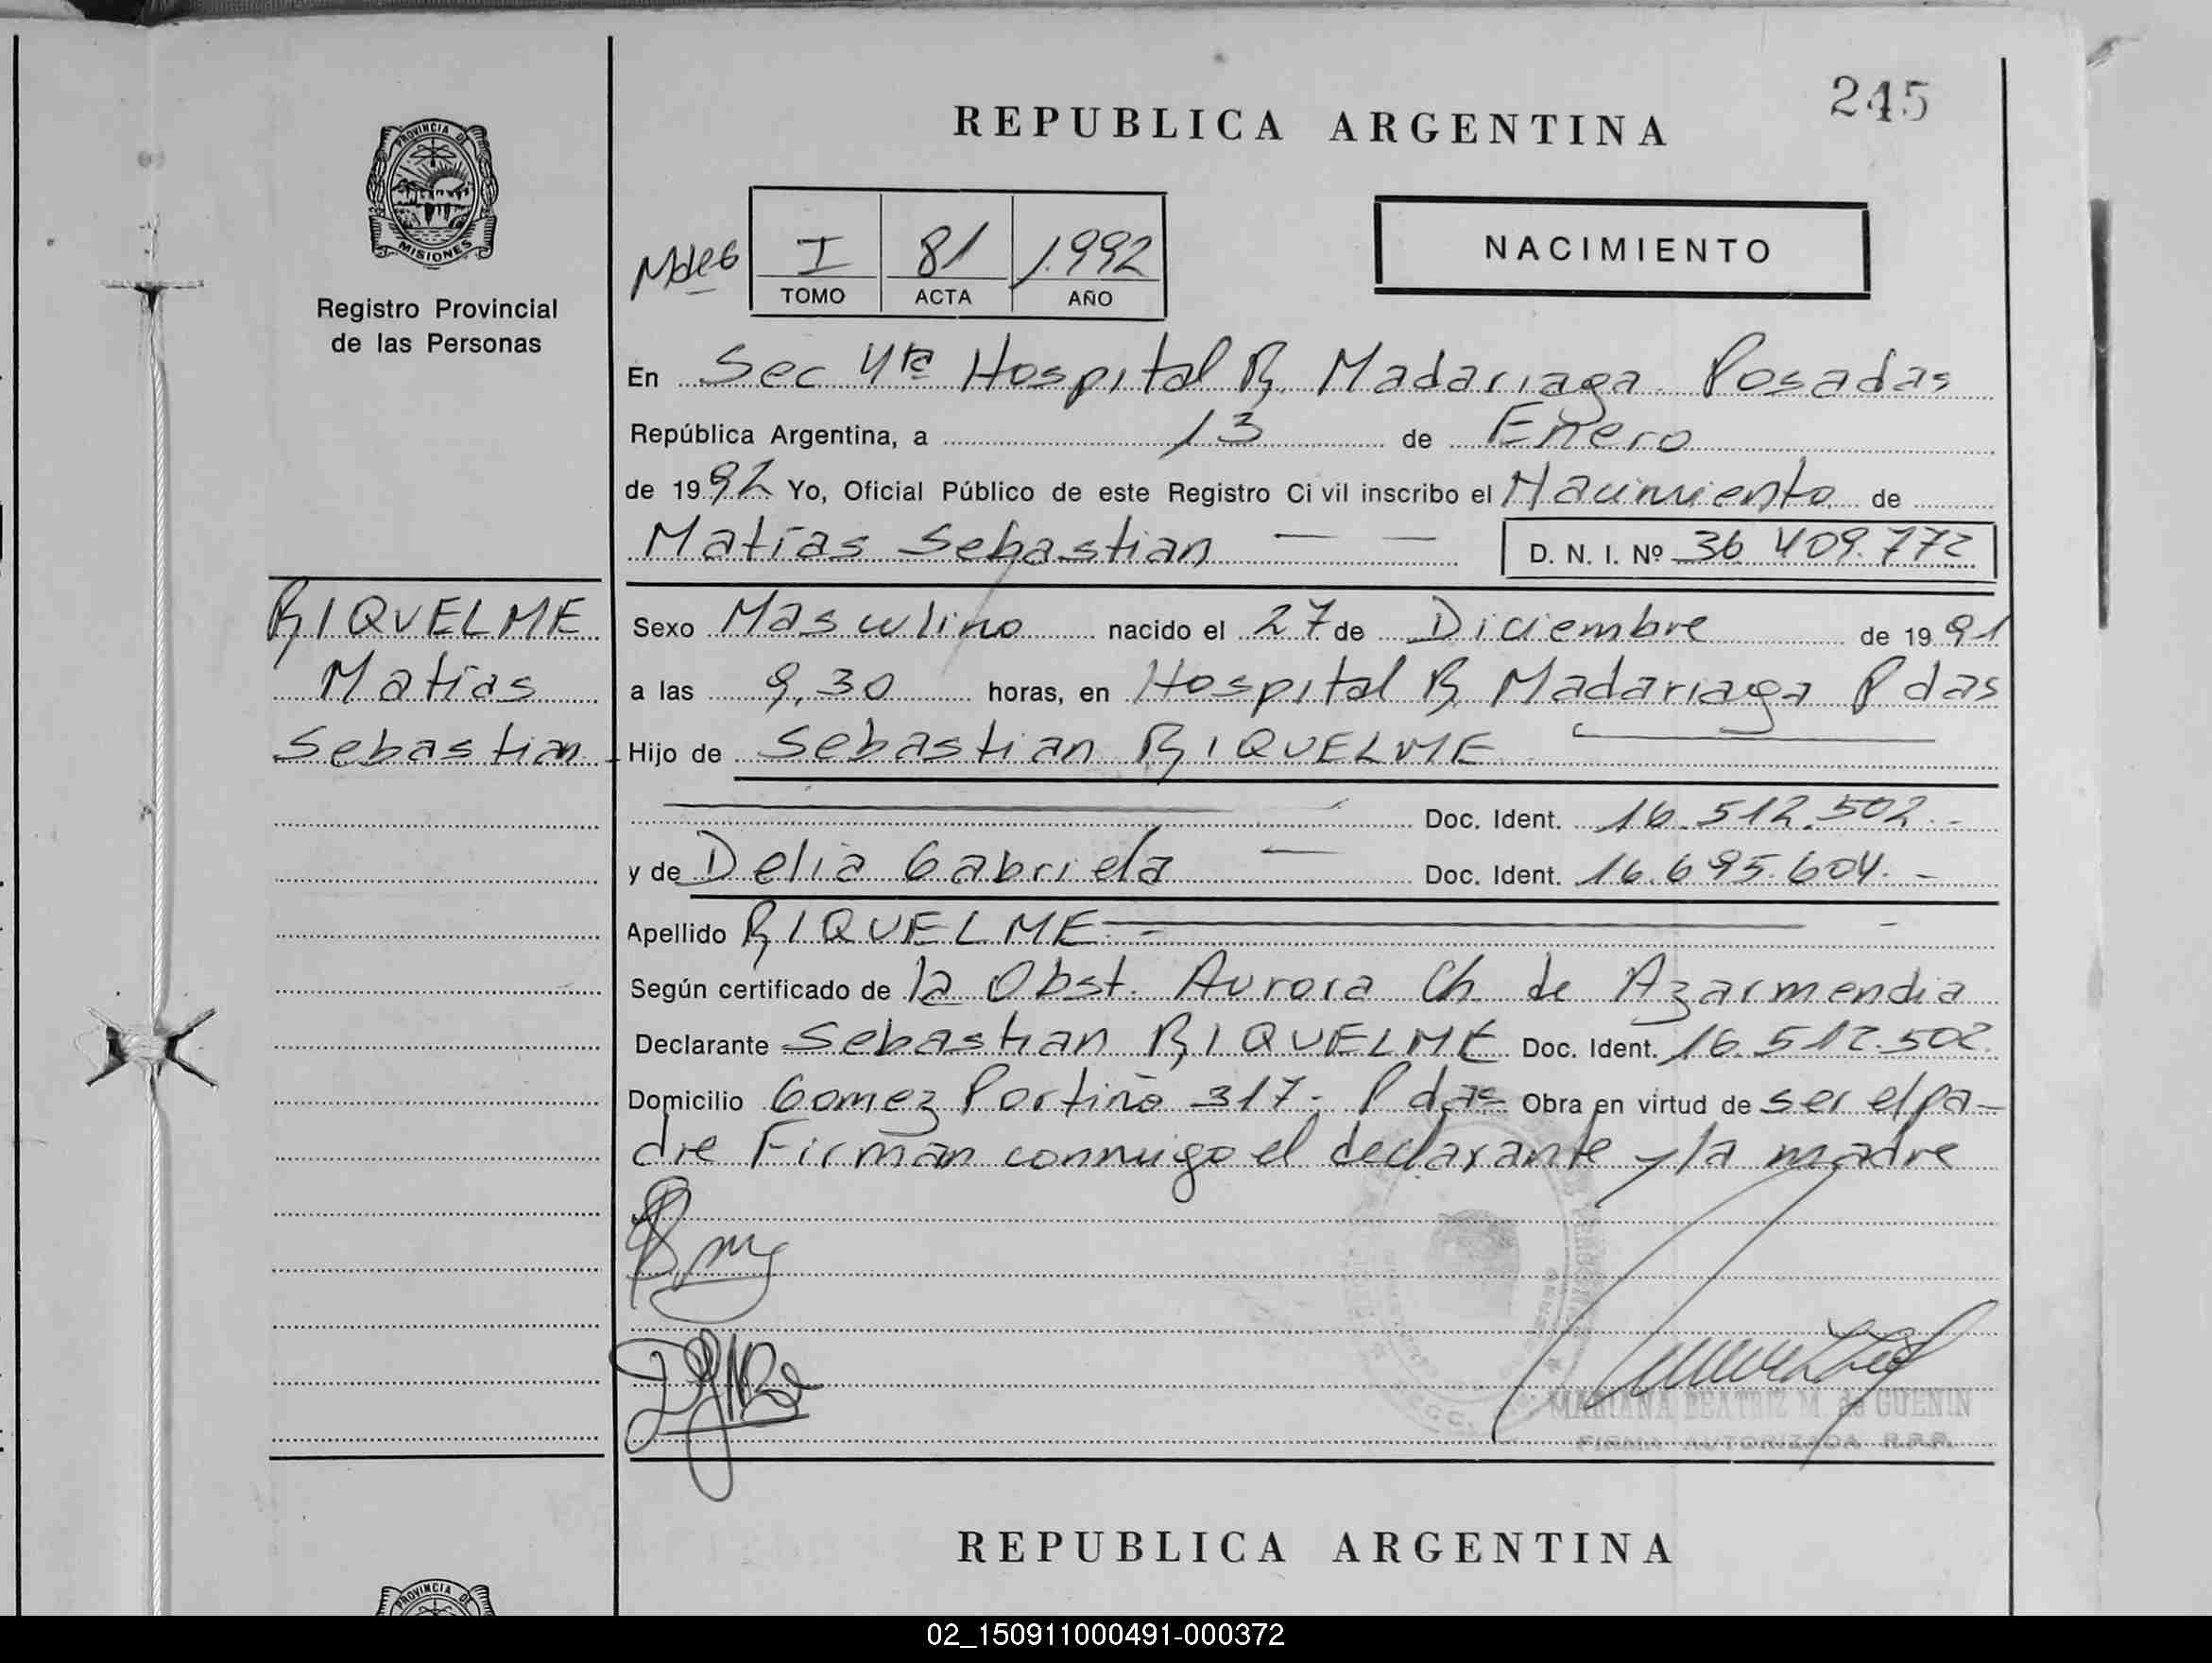 245
REPUBLICA ARGENTINA
PROVINCIA DE
MISIONES
Registro Provincial
de las Personas
I 81 1992
TOMO ACTA AÑO
NACIMIENTO
En Sec 4ta Hospital R. Madariaga Posadas
República Argentina, a 13 de Enero
de 1992 Yo, Oficial Público de este Registro Civil inscribo el Nacimiento de
Matías Sebastian D. N. I. Nº 36.409.772
RIQUELME
Matías
Sebastian
Sexo Masculino nacido el 27 de Diciembre de 1991
a las 9,30 horas, en Hospital R. Madariaga Pdas
Hijo de Sebastian RIQUELME
Doc. Ident. 16.512.502
y de Delia Gabriela Doc. Ident. 16.695.604.
Apellido RIQUELME
Según certificado de la Obst. Aurora Ch. de Azarmendia
Declarante Sebastian RIQUELME Doc. Ident. 16.512.502.
Domicilio Gomez Portiño 317, Pdas Obra en virtud de ser el pa-
dre Firman conmigo el declarante y la madre
MARIANA BEATRIZ M. de GUENIN
FIRMA AUTORIZADA R.P.P.
REPUBLICA ARGENTINA
PROVINCIA DE
02_150911000491-000372